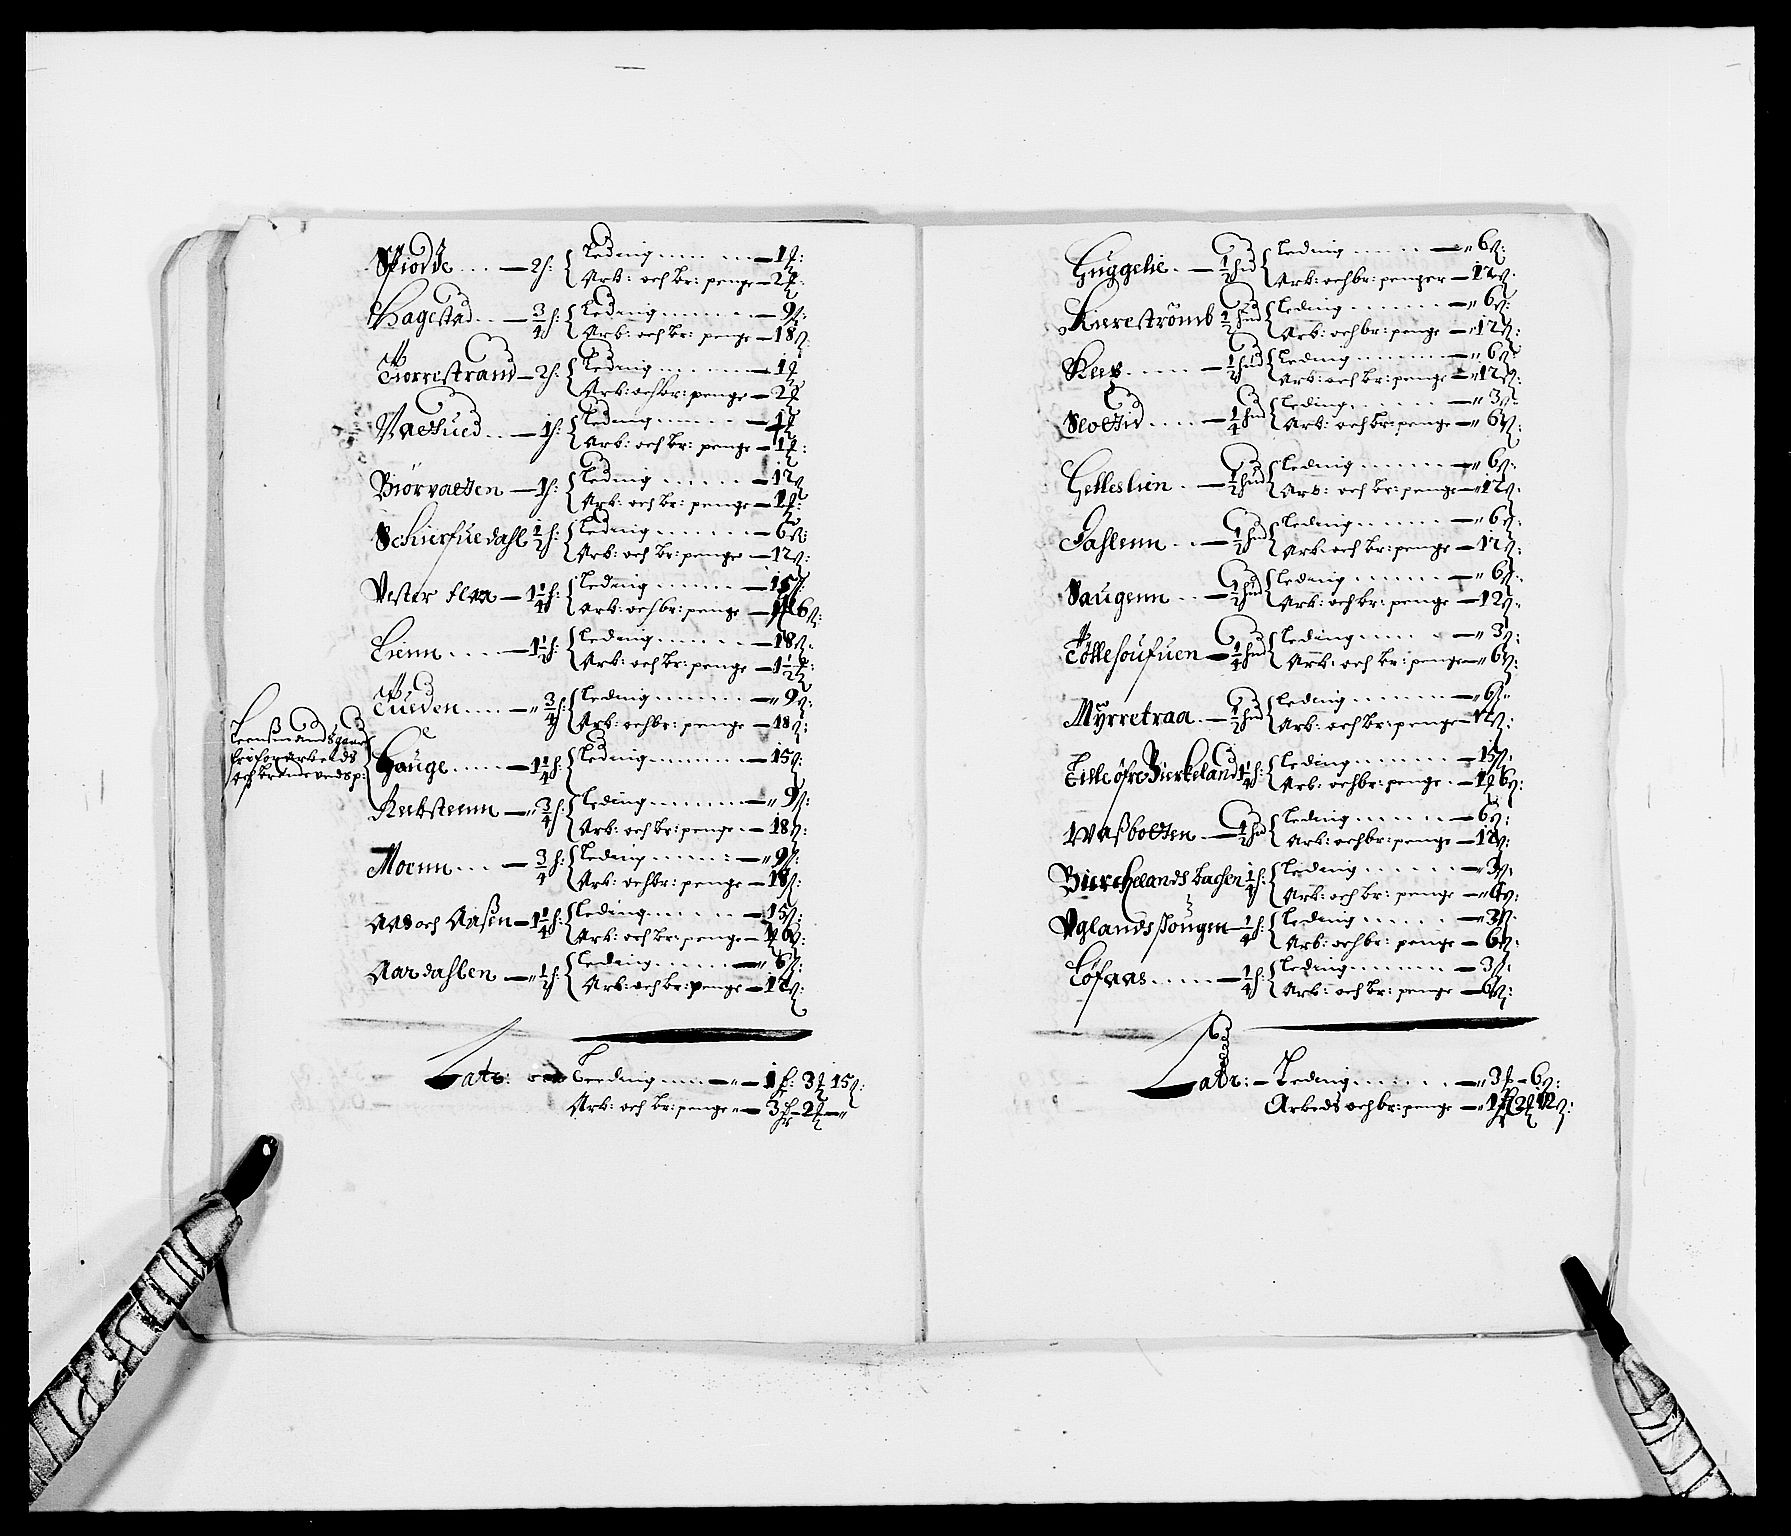 Spiodde .... — 2 h: { Leding ....... — 1 ₰:
Arb: och br: penge — 2 ₰
Hagestad ... — 3/4 h: { Leding ....... — 9 ß:
Arb: och br: penge — 18 ß:
Tiorrestrand — 2 h: { Leding ....... — 1 ₰
Arb: och br: penge — 2 ₰
Vaetsued ... — 1 h: { Leding ....... — 1 ₰
Arb: och br: penge — 1 ₰:
Biörvatten — 1 h: { Leding ...... — 12 ß
Arb: och br: penge — 1 ₰:
Schierfuedahl 1/2 h: { Leding ....... — 6 ß:
Arb: och br: penge — 12 ß:
Vester flaa — 1 1/4 h: { Leding ...... — 15 ß:
Arb: och br: penge — 1 ₰ 6 ß:
Lienn ..... — 1 1/2 h: { Leding ....... — 18 ß:
Arb: och br: penge — 1 1/2 ₰:
Tueden .... — " 3/4 h: { Leding ....... — " 9 ß:
Arb: och br: penge — 18 ß:
Leenßmandsgaard
fri for arbeids
och brende veds p:
Hauge ..... — 1 1/4 h: { Leding ....... — 15 ß:
Rebsteenn — " 3/4 h: { Leding ....... — " 9 ß:
Arb: och br: penge .. — 18 ß:
Moenn .... — 3/4 h: { Leding ...... : — " 9 ß:
Arb: och br: penge — 18 ß:
Aas och Aaßen — 1 1/4 h: { Leding ...... — 15 ß:
Arb: och br: penge — 1 ₰ 6 ß:
Aardahlen — " 1/2 h: { Leding ....... — " 6 ß:
Arb: och br: penge — 12 ß:
Latr: Leeding ..... — " — 1 f: 3 ₰ 15 ß:
Arb: och br: penge " — 3 f — 2 ₰ — "
Guggelie .. — 1/2 hud { Leding ....... — " 6 ß:
Arb: och br: penger — 12 ß:
Kiereströmb 1/2 hud { Leding ....... — " 6 ß:
Arb: och br: penge — " 12 ß:
— 1/2 hud { Leding ....... — " 6 ß:
Arb: och br: penge — " 12 ß:
— 1/4 hud { Leding ....... — " 3 ß:
Arb: och br: penge — " 6 ß:
Gelleslien .. — 1/2 hud { Leding ....... — " 6 ß:
Arb: och br: penge — " 12 ß:
Dahlenn ... — 1/2 hud { Leding ....... — " 6 ß:
Arb: och br: penge — 12 ß:
Haugenn ... — 1/2 hud { Leding ....... — " 6 ß:
Arb: och br: penge — 12 ß:
Töllehoufuen — 1/4 hud { Leding ..... — " 3 ß:
Arb: och br: penge — " 6 ß:
Myrretraa .. — 1/2 hud { Leding ....... — " 6 ß:
Arb: och br: penge — 12 ß:
Lille öfre Bierkeland 1 1/4 h: { Leding ....... — 15 ß:
Arb: och br: penge .. — 1 ₰ 6 ß:
Waßbotten — 1/2 hud { Leding ...... — 6 ß:
Arb: och br: penge — 12 ß:
Bierchelands bachen 1/4 h: { Leding ...... — " 3 ß:
Arb: och br: penge — " 6 ß:
Uglandshougen — 1/4 h: { Leding ...... — " 3 ß:
Arb: och br: penge — 6 ß:
Löfaas ..... — 1/4 h: { Leding ....... — 3 ß:
Arb: och br: penge — 6 ß:
Latr: — Leding ....... — " 3 f — 6 ß:
Arbeds och br: penge — " 1 f 2 ₰ 12 ß: